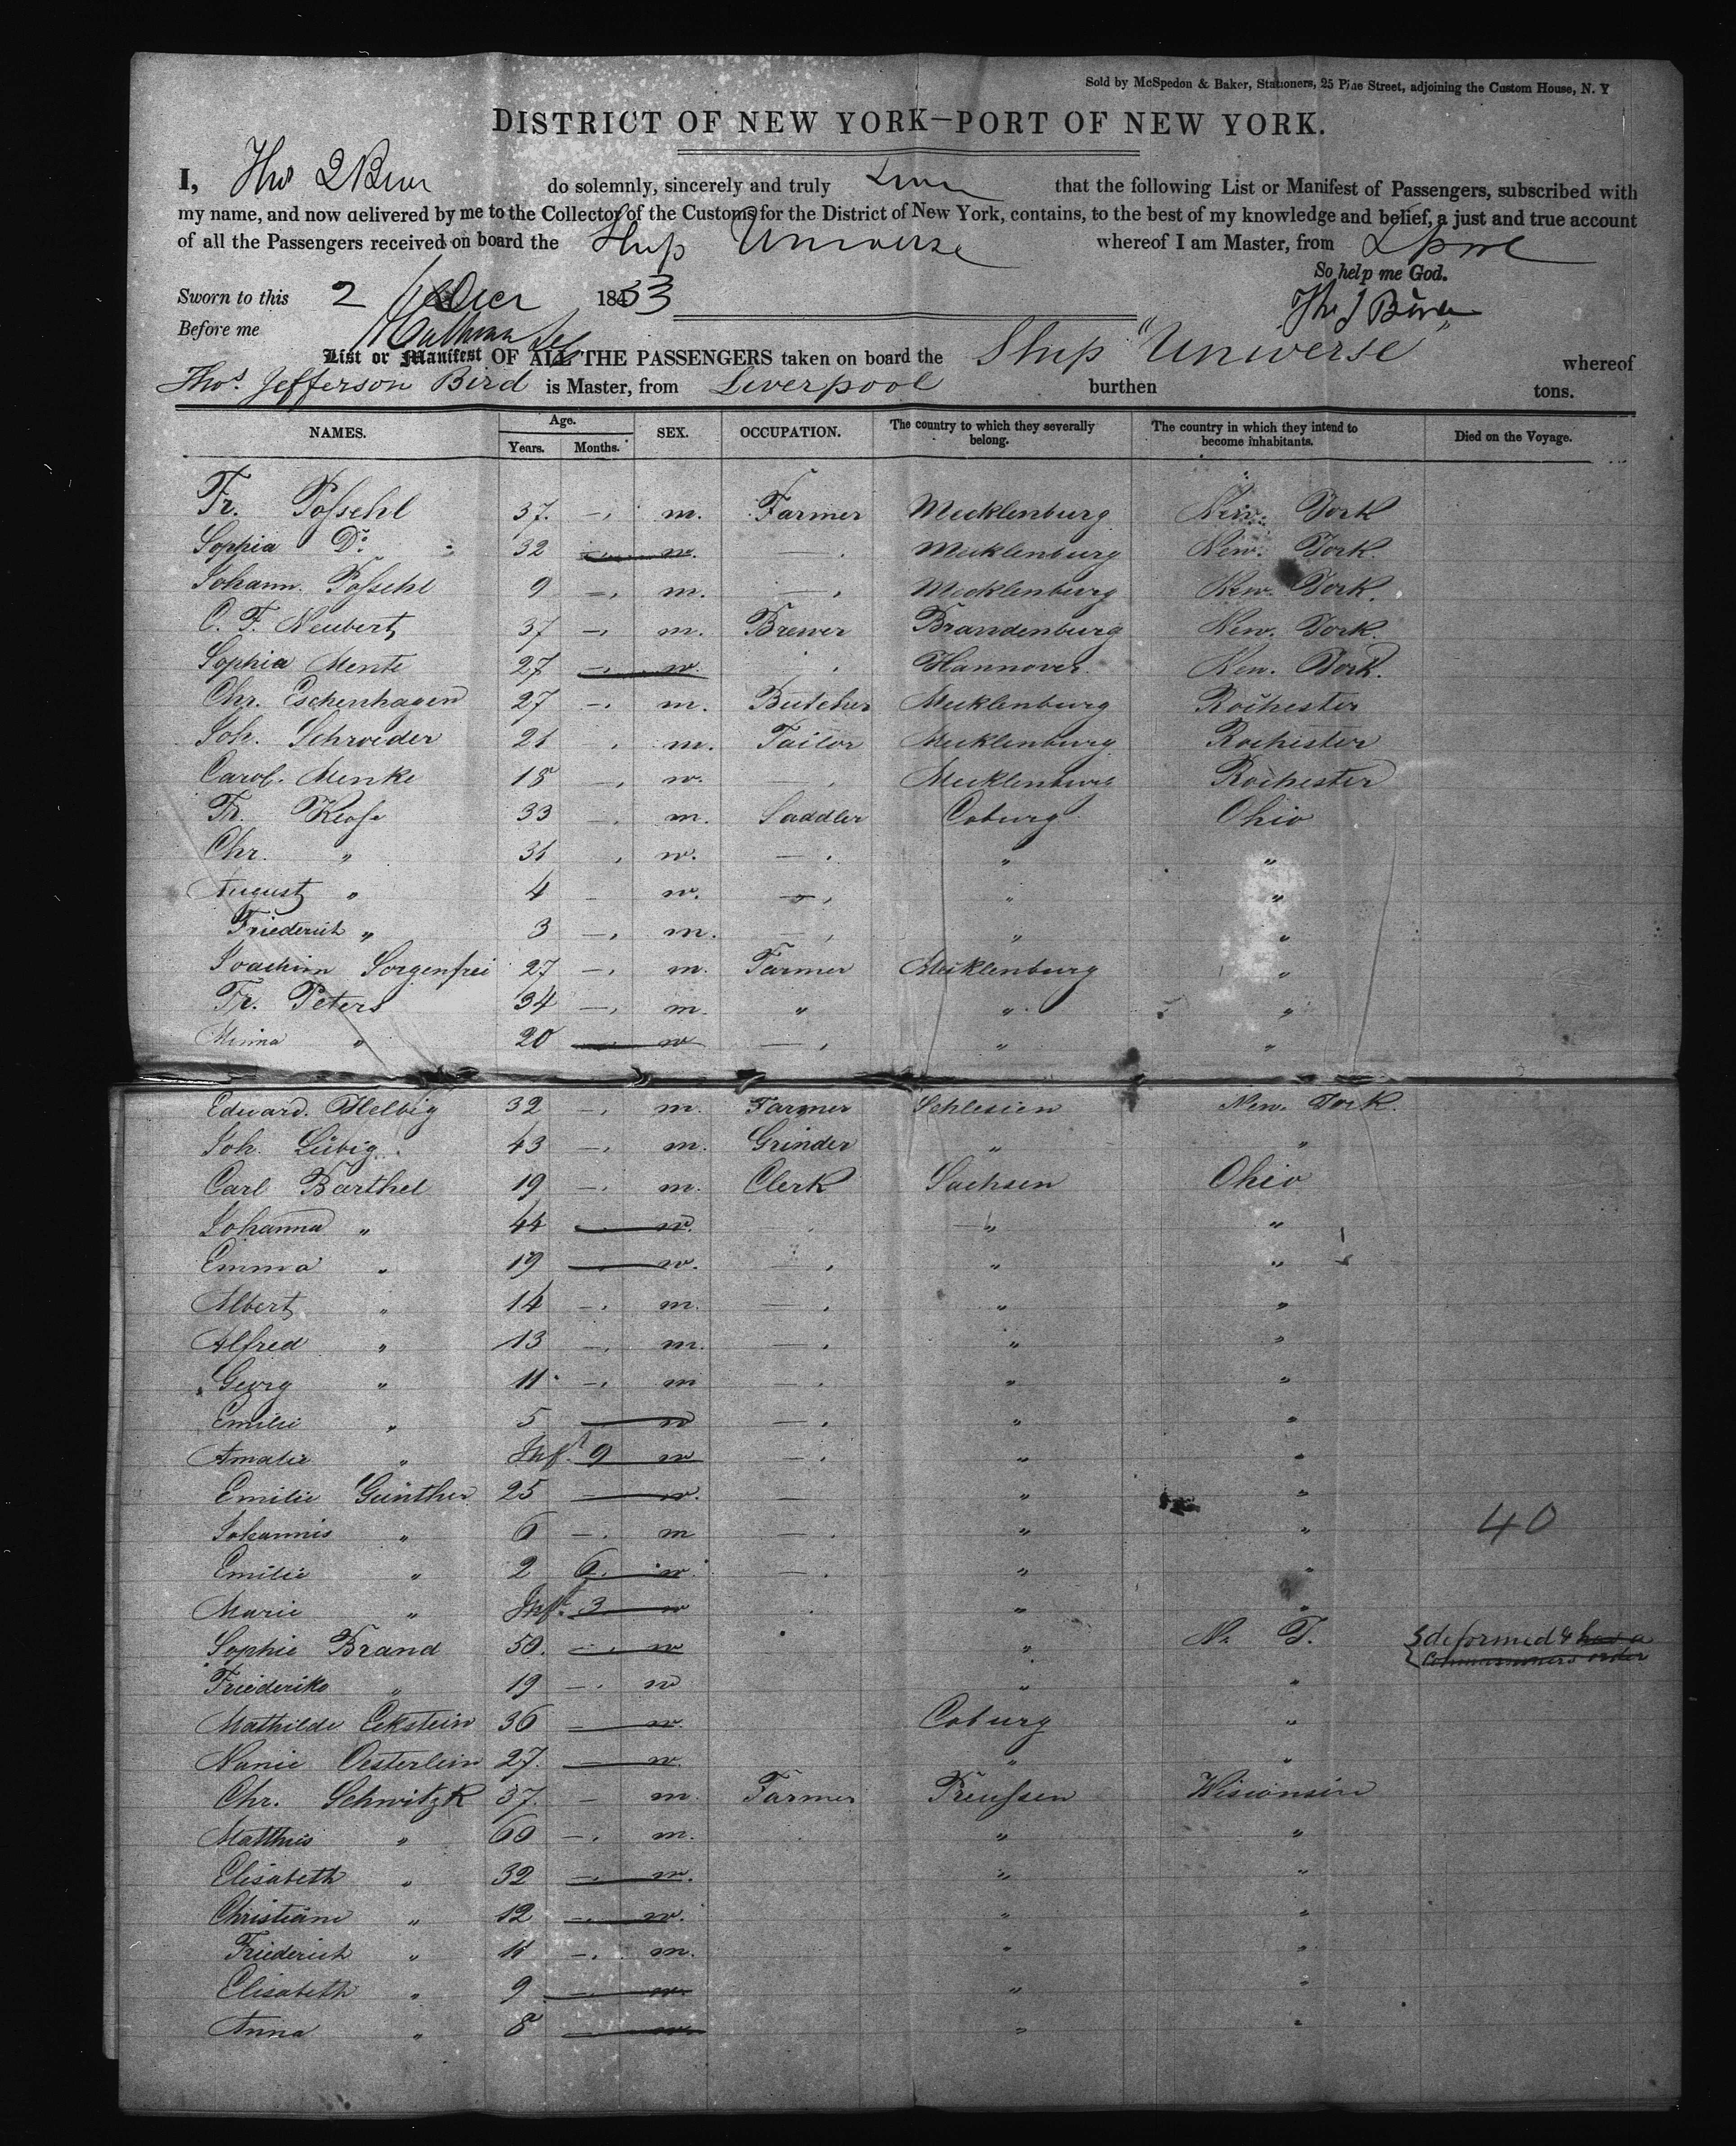 Sold by McSpedon & Baker, Stationers, 25 Pine Street, adjoining the Custom House, N. Y
DISTRICT OF NEW YORK—PORT OF NEW YORK.
I, Thos J Bird do solemnly, sincerely and truly swear that the following List or Manifest of Passengers, subscribed with
my name, and now delivered by me to the Collector of the Customs for the District of New York, contains, to the best of my knowledge and belief, a just and true account
of all the Passengers received on board the Ship Universe whereof I am Master, from Lpool
So help me God.
Sworn to this 2 1853 Tho J Bird
Before me
List or Manifest OF ALL THE PASSENGERS taken on board the Ship "Universe" whereof
Thos. Jefferson Bird is Master, from Liverpool burthen tons.
NAMES. Age. Years. Months. SEX. OCCUPATION. The country to which they severally belong. The country in which they intend to become inhabitants. Died on the Voyage.
Fr. Poſsehl 37. — m. Farmer Mecklenburg New. York
Sophia Do. 32 — w. — Mecklenburg New. York.
Johann. Poſsehl 9 — m. — Mecklenburg New. York.
C. F. Neubert 37 — m. Brewer Brandenburg New. York.
Sophia Mente 27 — w. Hannover. New. York.
Chr. Eschenhagen 27 — m. Butcher Mecklenburg Rochester
Joh. Schroeder 21 m. Tailor Mecklenburg Rochester
Carol. Menke 18 — w. — Mecklenburg Rochester
Fr. Kloſe 33 — m. Saddler Coburg Ohio
Chr. " 31 w. — " "
August " 4 - w. — " "
Friederich " 3 — m. — " "
Joachim Sorgenfrei 27 — m. Farmer Mecklenburg "
Fr. Peters 34 — m. " " "
Minna " 20 — w — " "
Edward. Helbig 32 — m. Farmer Schlesien New. York.
Joh. Liibig. 43 — m. Grinder " "
Carl Barthel 19 — m. Clerk Sachsen Ohio
Johanna " 44 — w. " "
Emma " 19 — w. — " "
Albert " 14 — m. — " "
Alfred " 13 — m. — " "
Georg " 11 — m — " "
Emilie " 5 — w — " "
Amalie " Inft. 9 w — " "
Emilie Günther 25 — w. — " "
Johannis " 6 — m — " " 40
Emilie " 2 6. w. — " "
Marie " Inft. 3 w " "
Sophie Brand 50. — w " N. Y. deformed & has a Commissioners order
Friederike " 19 — w " "
Mathilde Eckstein 36 — w. Coburg "
Nanie Oesterlein 27. — w. " "
Chr. Schwitzk 37. — m. Farmer Preuſsen Wisconsin
Matthies " 60 — m. " "
Elisabeth " 32 — w. " "
Christiane " 12 — w. " "
Friederich " 11 — m. " "
Elisabeth " 9 — w. " "
Anna " 8 — w. " "